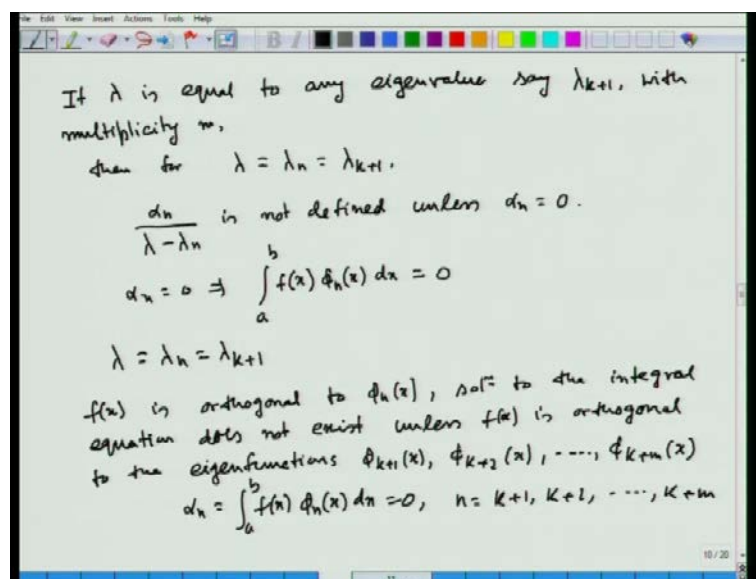 File Edit View Insert Actions Tools Help
If λ is equal to any eigenvalue say λk+1, with
multiplicity m,
then for λ = λn = λk+1.
αn / (λ - λn) is not defined unless αn = 0.
αn = 0 ⇒ ∫_a^b f(x) ϕn(x) dx = 0
λ = λn = λk+1
f(x) is orthogonal to ϕn(x), solⁿ to the integral
equation does not exist unless f(x) is orthogonal
to the eigenfunctions ϕk+1(x), ϕk+2(x), ----, ϕk+m(x)
αn = ∫_a^b f(x) ϕn(x) dx = 0, n = k+1, k+2, ----, k+m
10 / 20